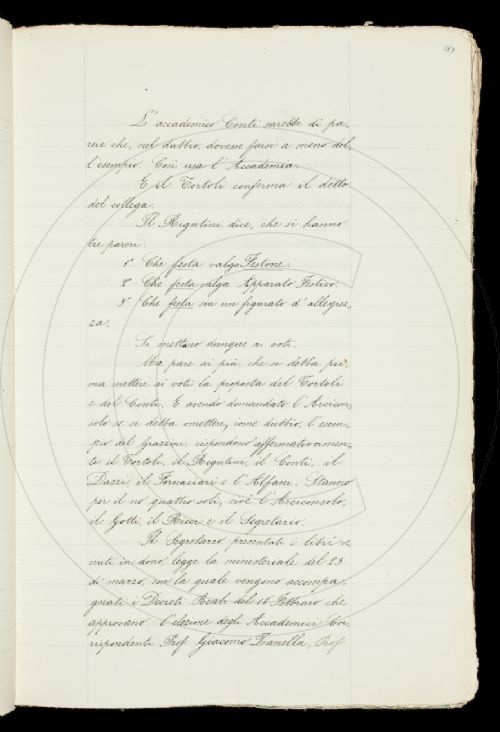 189
L'accademico Conti sarebbe di pa-
rere che, nel dubbio, dovesse farsi a meno del-
l'esempio. Così usa l'Accademia.
E il Tortoli conferma il detto
del collega.
Il Rigutini dice, che si hanno
tre pareri:
1° Che festa valga Festone.
2° Che festa valga Apparato Festivo.
3° Che festa sia un figurato d'allegrez-
za.
Si mettano dunque ai voti.
Ma pare ai più, che si debba pri-
ma mettere ai voti la proposta del Tortoli
e del Conti. E avendo domandato l'Arcicon-
solo se si debba omettere, come dubbio, l'esem-
pio del Grazzini, rispondono affermativamen-
te il Tortoli, il Rigutini, il Conti, il
Dazzi, il Fornaciari e l'Alfani. Stanno
per il no quattro soli, cioè l'Arciconsolo,
il Gotti, il Ricci e il Segretario.
Il Segretario, presentati i libri ve-
nuti in dono, legge la ministeriale del 23
di marzo, con la quale vengono accompa-
gnati i Decreti Reali del 18 Febbraio che
approvano l'elezione degli Accademici Cor-
rispondenti Prof. Giacomo Zanella, Prof.